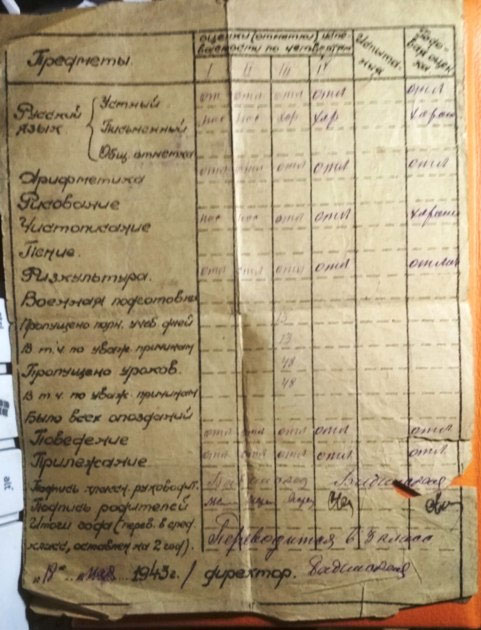 Предметы оценки (отметки) успеваемости по четвертям Испытания Годовая оценка
I II III IV
Русский язык Устный отл отл отл отл отл
Письменный пос пос хор хор
Общ. отметка
Арифметика отл отл отл отл отл
Рисование
Чистописание пос пос отл отл
Пение.
Физкультура. отл отл отл отл
Военная подготовка
Пропущено полн. учеб дней 13
В т.ч по уваж. причинам 13
Пропущено уроков. 48
В т.ч по уваж. причинам 48
Было всех опозданий
Поведение отл отл отл отл отл
Прилежание отл отл отл отл отл
Подпись классн. руководит.
Подпись родителей
Итоги года (перев. в след класс, оставлен на 2 год). Переводится в 3 класс
"19" мая 1943г./ директор.